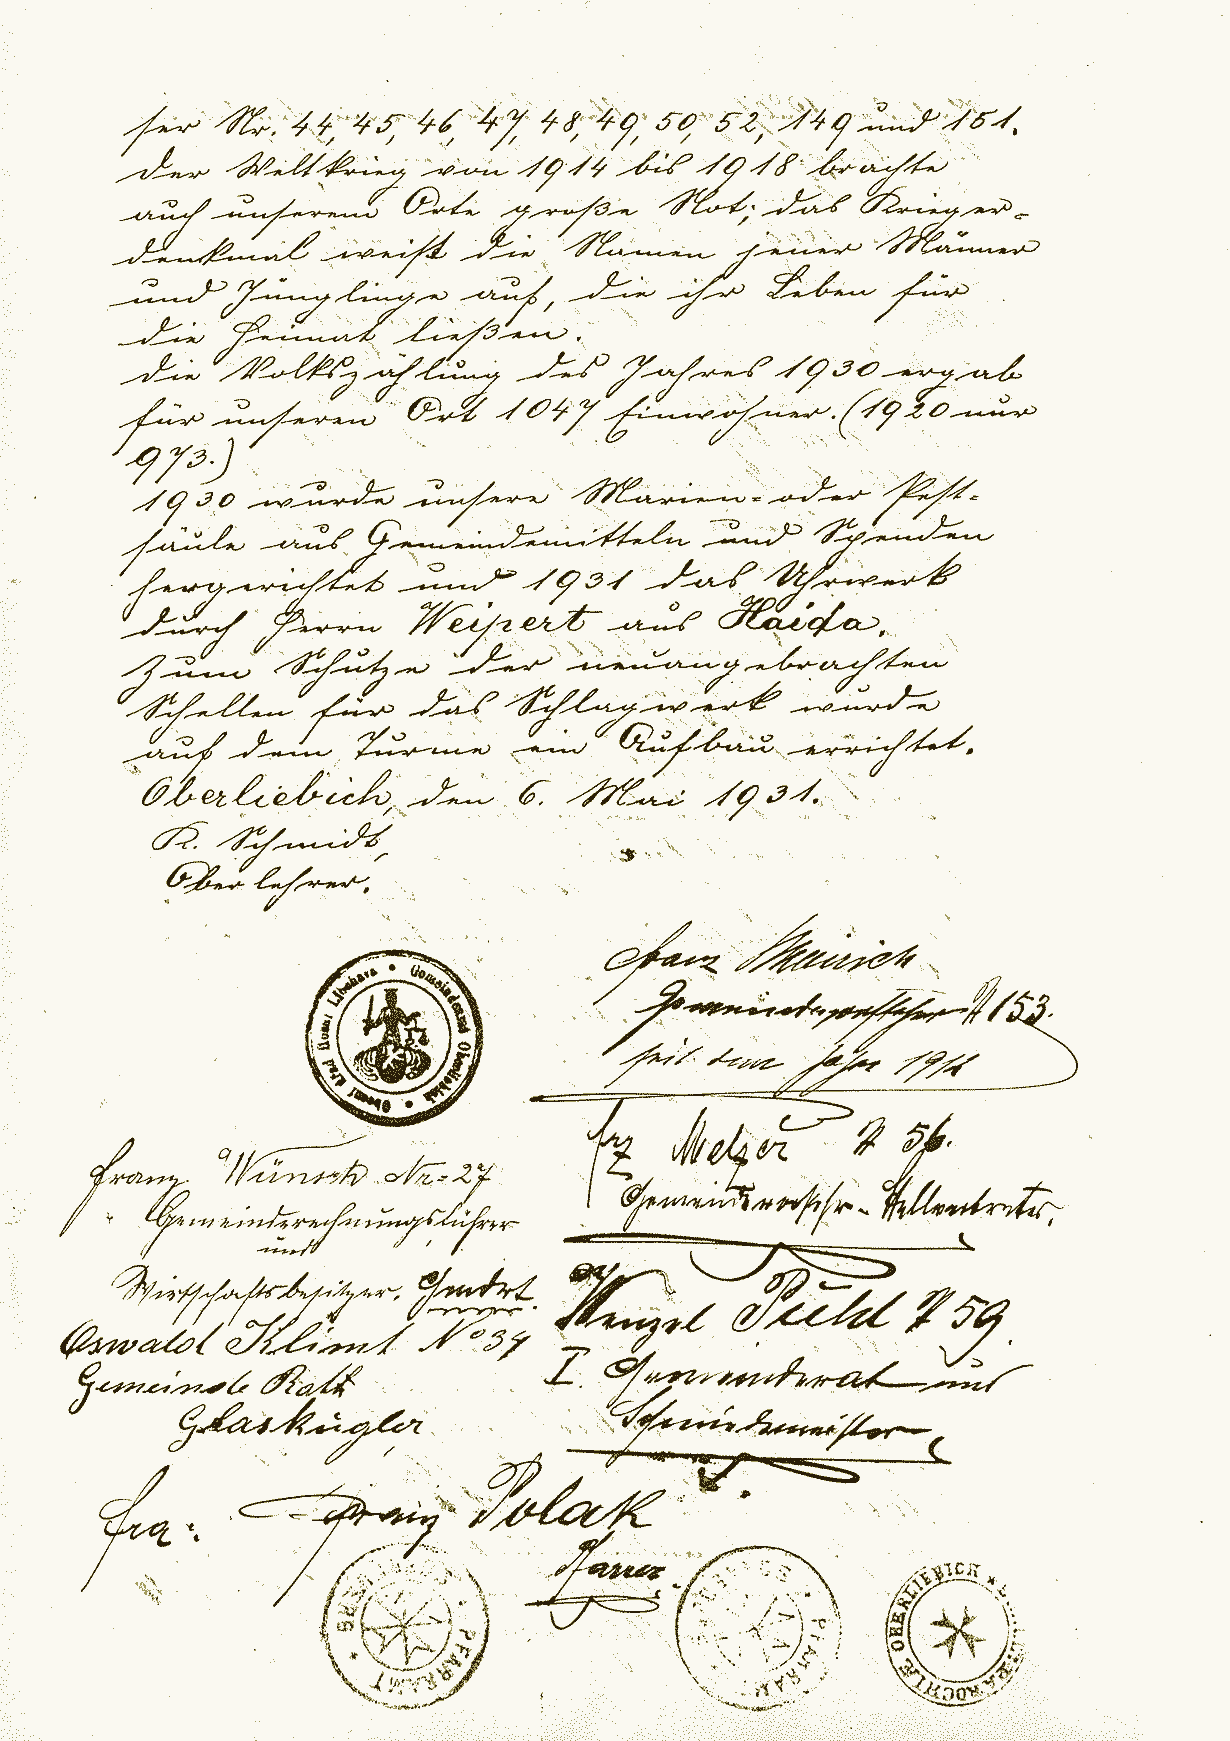 ser Nr. 44, 45, 46, 47, 48, 49, 50, 52, 149 und 151.
Der Weltkrieg von 1914 bis 1918 brachte
auch unserem Orte große Not; das Krieger-
denkmal weist die Namen jener Männer
und Jünglinge auf, die ihr Leben für
die Heimat ließen.
Die Volkszählung des Jahres 1930 ergab
für unseren Ort 1047 Einwohner. (1920 nur
973.)
1930 wurde unsere Marien- oder Pest-
säule aus Gemeindemitteln und Spenden
hergerichtet und 1931 das Uhrwerk
durch Herrn Weipert aus Haida.
Zum Schutze der neuangebrachten
Schellen für das Schlagwerk wurde
auf dem Turme ein Aufbau errichtet.
Oberliebich, den 6. Mai 1931.
K. Schmidt,
Oberlehrer.
Franz
Gemeindevorsteher № 153.
seit dem Jahre
Obecní úřad Horní Libchava • Gemeindeamt Oberliebich •
Frz Melzer № 56.
Gemeindevorsthr-Stellvertreter.
Franz Wünsch Nr. 27
Gemeinderechnungsführer
und
Wirtschaftsbesitzer.
Wenzel № 59
I. Gemeinderat und
Schmiedemeister
Oswald Klimt No 34
Gemeinde Rath
Glaskugler
Fra: Franz Polak
Pfarrer.
PFARRAMT
PFARRAMT
OBERLIEBICH